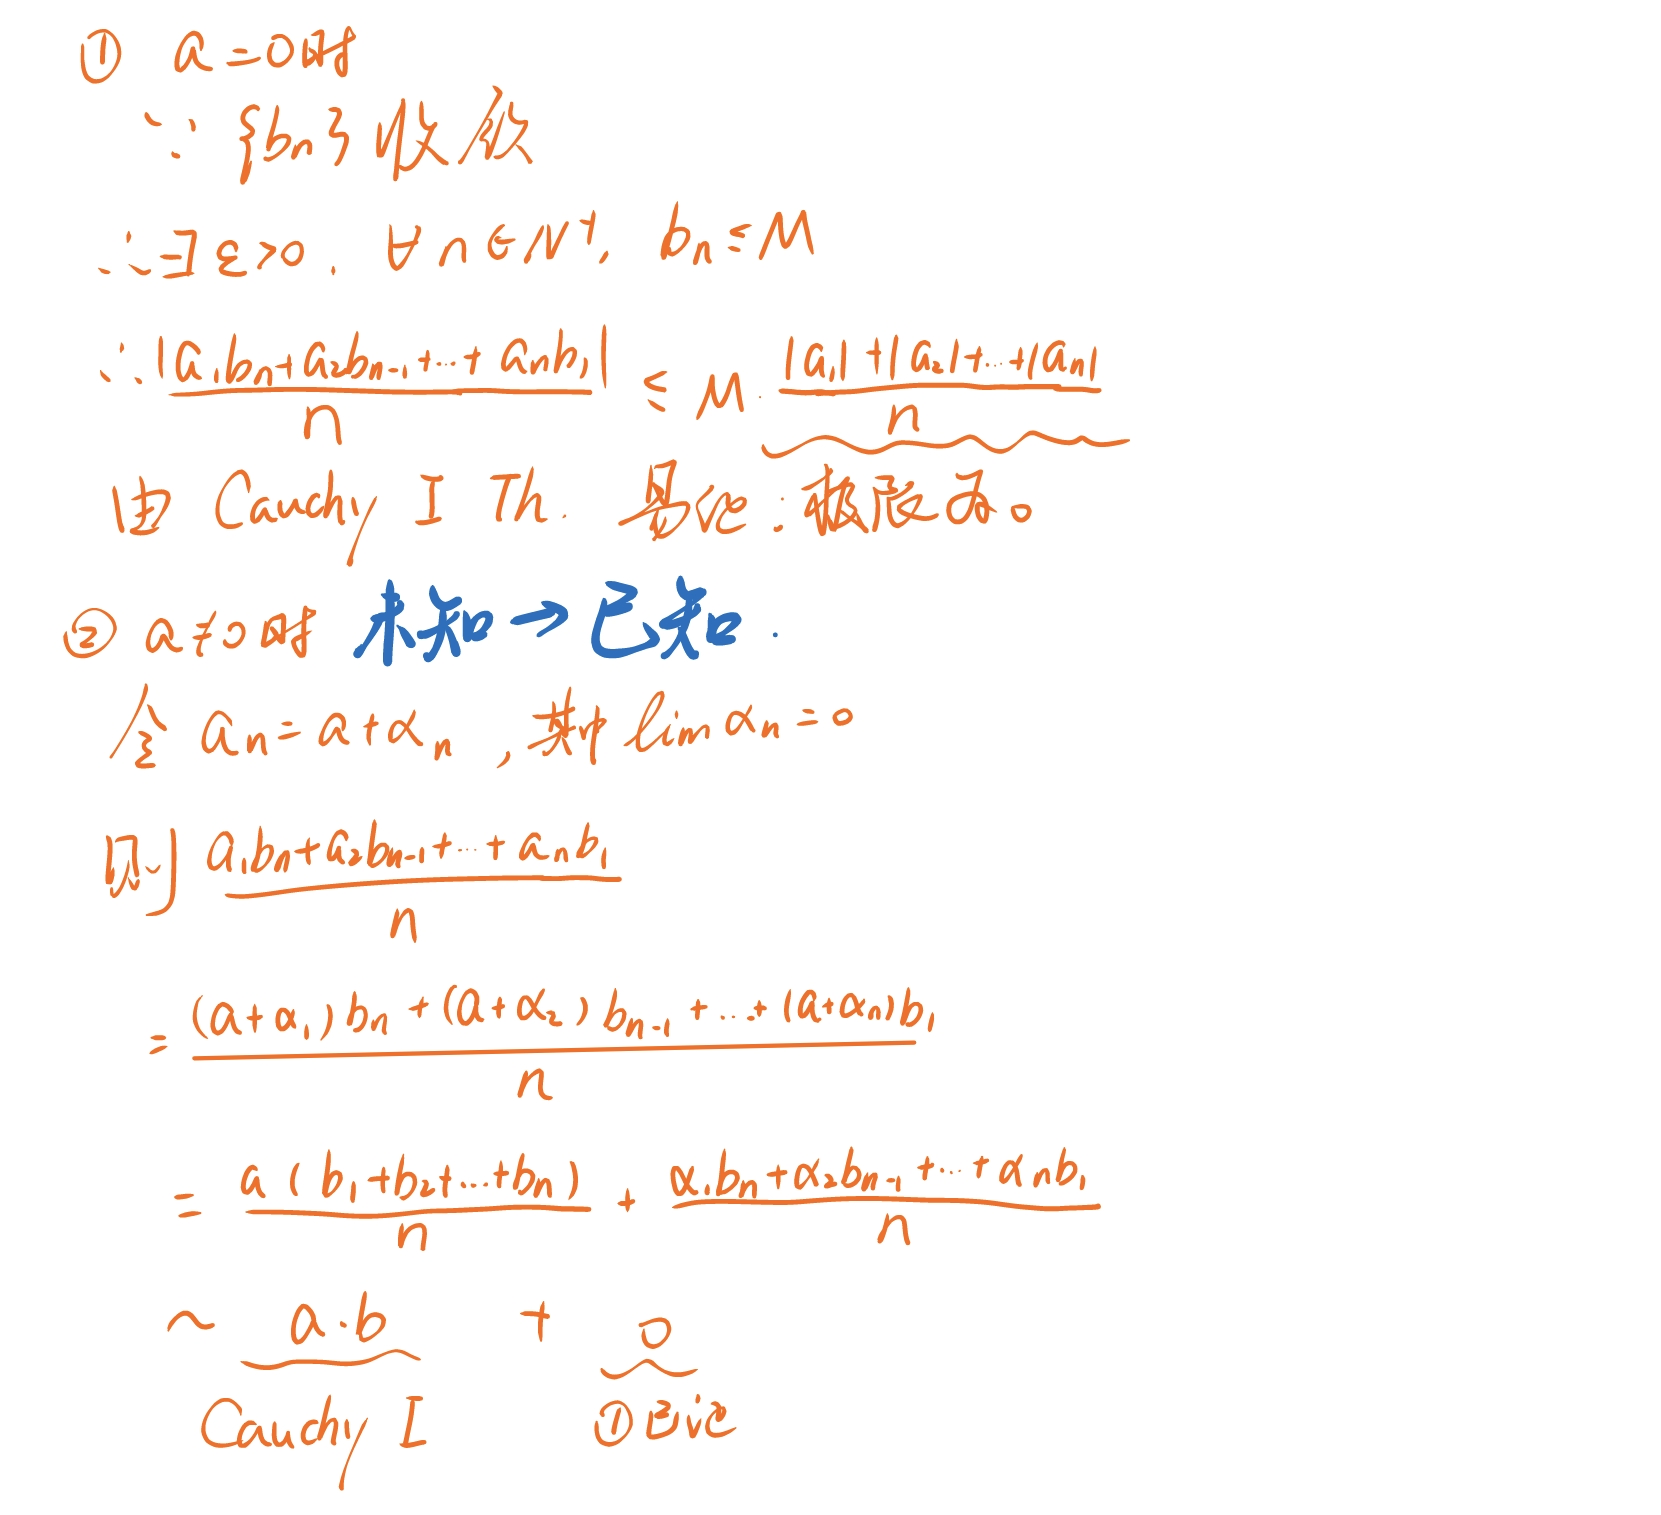 ① a=0时
∵ {bn} 收敛
∴∃ε>0. ∀n∈N⁺, bn≤M
∴ |a₁bn+a₂bn-₁+…+anb₁| / n ≤ M · (|a₁|+|a₂|+…+|an|) / n
由 Cauchy I Th. 易证:极限为0
② a≠0时 未知→已知.
令 an=a+αn , 其中 lim αn=0
则 (a₁bn+a₂bn-₁+…+anb₁) / n
= ((a+α₁)bn+(a+α₂)bn-₁+…+(a+αn)b₁) / n
= a(b₁+b₂+…+bn) / n + (α₁bn+α₂bn-₁+…+αnb₁) / n
~ a·b + 0
Cauchy I ①已证